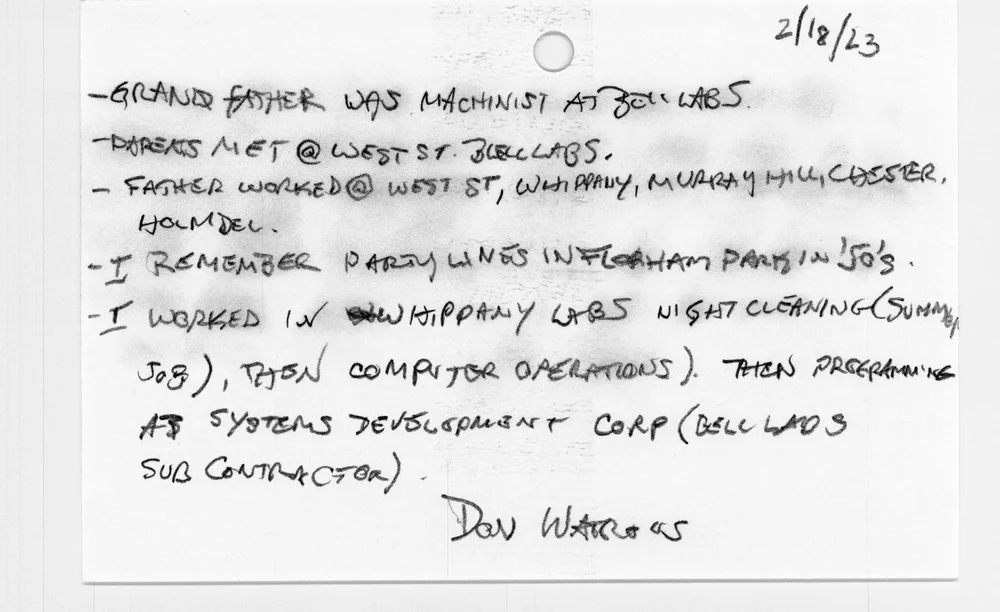 2/18/23
- GRANDFATHER WAS MACHINIST AT BELL LABS.
- PARENTS MET @ WEST ST. BELL LABS.
- FATHER WORKED @ WEST ST, WHIPPANY, MURRAY HILL, CHESTER,
HOLMDEL.
- I REMEMBER PARTY LINES IN FLORHAM PARK IN '50'S.
- I WORKED IN WHIPPANY LABS NIGHT CLEANING (SUMMER
JOB), THEN COMPUTER OPERATIONS). THEN PROGRAMMING
AT SYSTEMS DEVELOPMENT CORP (BELL LABS
SUB CONTRACTOR).
DON WATROUS